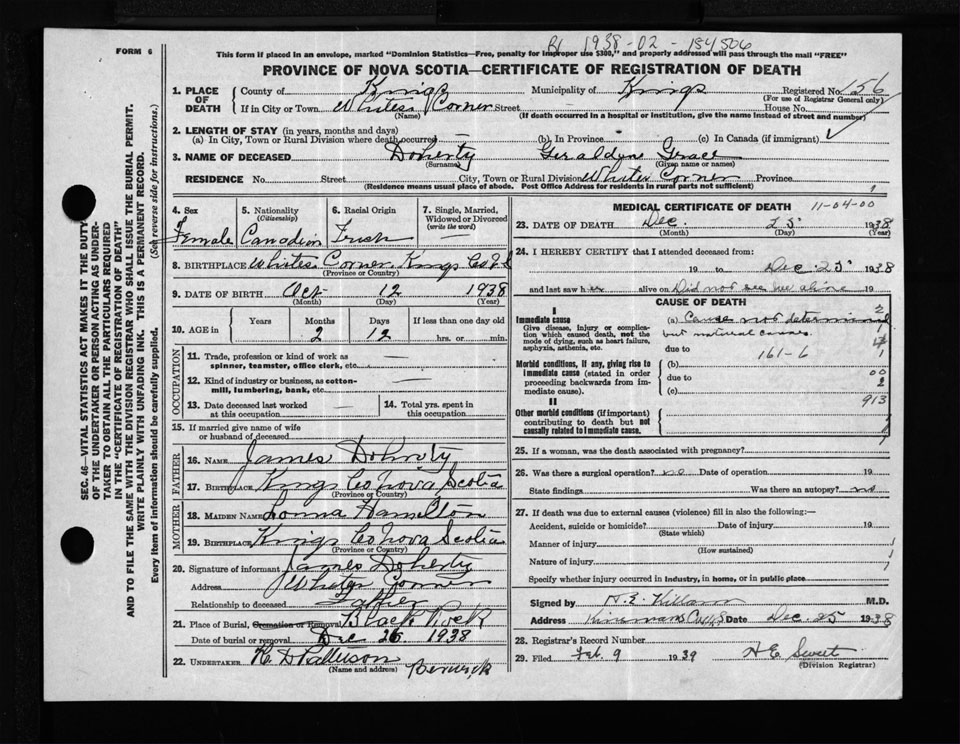 1938-02-184506
FORM 6
This form if placed in an envelope, marked "Dominion Statistics—Free, penalty for improper use $300," and properly addressed will pass through the mail "FREE"
PROVINCE OF NOVA SCOTIA—CERTIFICATE OF REGISTRATION OF DEATH
SEC. 46—VITAL STATISTICS ACT MAKES IT THE DUTY
OF THE UNDERTAKER OR PERSON ACTING AS UNDER-
TAKER TO OBTAIN ALL THE PARTICULARS REQUIRED
IN THE "CERTIFICATE OF REGISTRATION OF DEATH"
AND TO FILE THE SAME WITH THE DIVISION REGISTRAR WHO SHALL ISSUE THE BURIAL PERMIT.
WRITE PLAINLY WITH UNFADING INK. THIS IS A PERMANENT RECORD.
Every item of information should be carefully supplied. (See reverse side for instructions.)
1. PLACE OF DEATH County of Kings Municipality of Kings Registered No. 156
(For use of Registrar General only)
If in City or Town Whites Corner Street House No.
(Name) (If death occurred in a hospital or institution, give the name instead of street and number)
2. LENGTH OF STAY (in years, months and days)
(a) In City, Town or Rural Division where death occurred — (b) In Province (c) In Canada (if immigrant)
3. NAME OF DECEASED Doherty Geraldyne Grace
(Surname) (Given name or names)
RESIDENCE No. Street City, Town or Rural Division Whites Corner Province
(Residence means usual place of abode. Post Office Address for residents in rural parts not sufficient)
4. Sex Female
5. Nationality (Citizenship) Canadian
6. Racial Origin Irish
7. Single, Married, Widowed or Divorced (write the word)
8. BIRTHPLACE Whites Corner Kings Co N S
(Province or Country)
9. DATE OF BIRTH Oct 12 1938
(Month) (Day) (Year)
10. AGE in Years Months Days If less than one day old
2 12 hrs. or min.
OCCUPATION
11. Trade, profession or kind of work as spinner, teamster, office clerk, etc. —
12. Kind of industry or business, as cotton-mill, lumbering, bank, etc. —
13. Date deceased last worked at this occupation —
14. Total yrs. spent in this occupation
15. If married give name of wife or husband of deceased
FATHER
16. NAME James Doherty
17. BIRTHPLACE Kings Co Nova Scotia
(Province or Country)
MOTHER
18. MAIDEN NAME Lonna Hamelton
19. BIRTHPLACE Kings Co Nova Scotia
(Province or Country)
20. Signature of informant James Doherty
Address Whites Corner
Relationship to deceased Father
21. Place of Burial, Cremation or Removal Black Rock
Date of burial or removal Dec 26 1938
22. UNDERTAKER H. D Patterson Berwick
(Name and address)
MEDICAL CERTIFICATE OF DEATH 11-04-00
23. DATE OF DEATH Dec. 25 1938
(Month) (Day) (Year)
24. I HEREBY CERTIFY that I attended deceased from:
19 to Dec 25 1938
and last saw her alive on Did not see her alive 19
CAUSE OF DEATH
I
Immediate cause
Give disease, injury or complication which caused death, not the mode of dying, such as heart failure, asphyxia, asthenia, etc.
(a) Cause not determined
but natural causes.
due to 161-6
Morbid conditions, if any, giving rise to immediate cause (stated in order proceeding backwards from immediate cause).
(b)
due to
(c)
00
2
913
II
Other morbid conditions (if important) contributing to death but not causally related to immediate cause.
25. If a woman, was the death associated with pregnancy?
26. Was there a surgical operation? no Date of operation 19
State findings Was there an autopsy? no
27. If death was due to external causes (violence) fill in also the following:—
Accident, suicide or homicide? Date of injury 19
(State which)
Manner of injury
(How sustained)
Nature of injury
Specify whether injury occurred in industry, in home, or in public place
Signed by H. E. Killam M.D.
Address Kinsmans Cor N.S Date Dec. 25 1938
28. Registrar's Record Number
29. Filed Feb. 9 1939 H E Sweet
(Division Registrar)